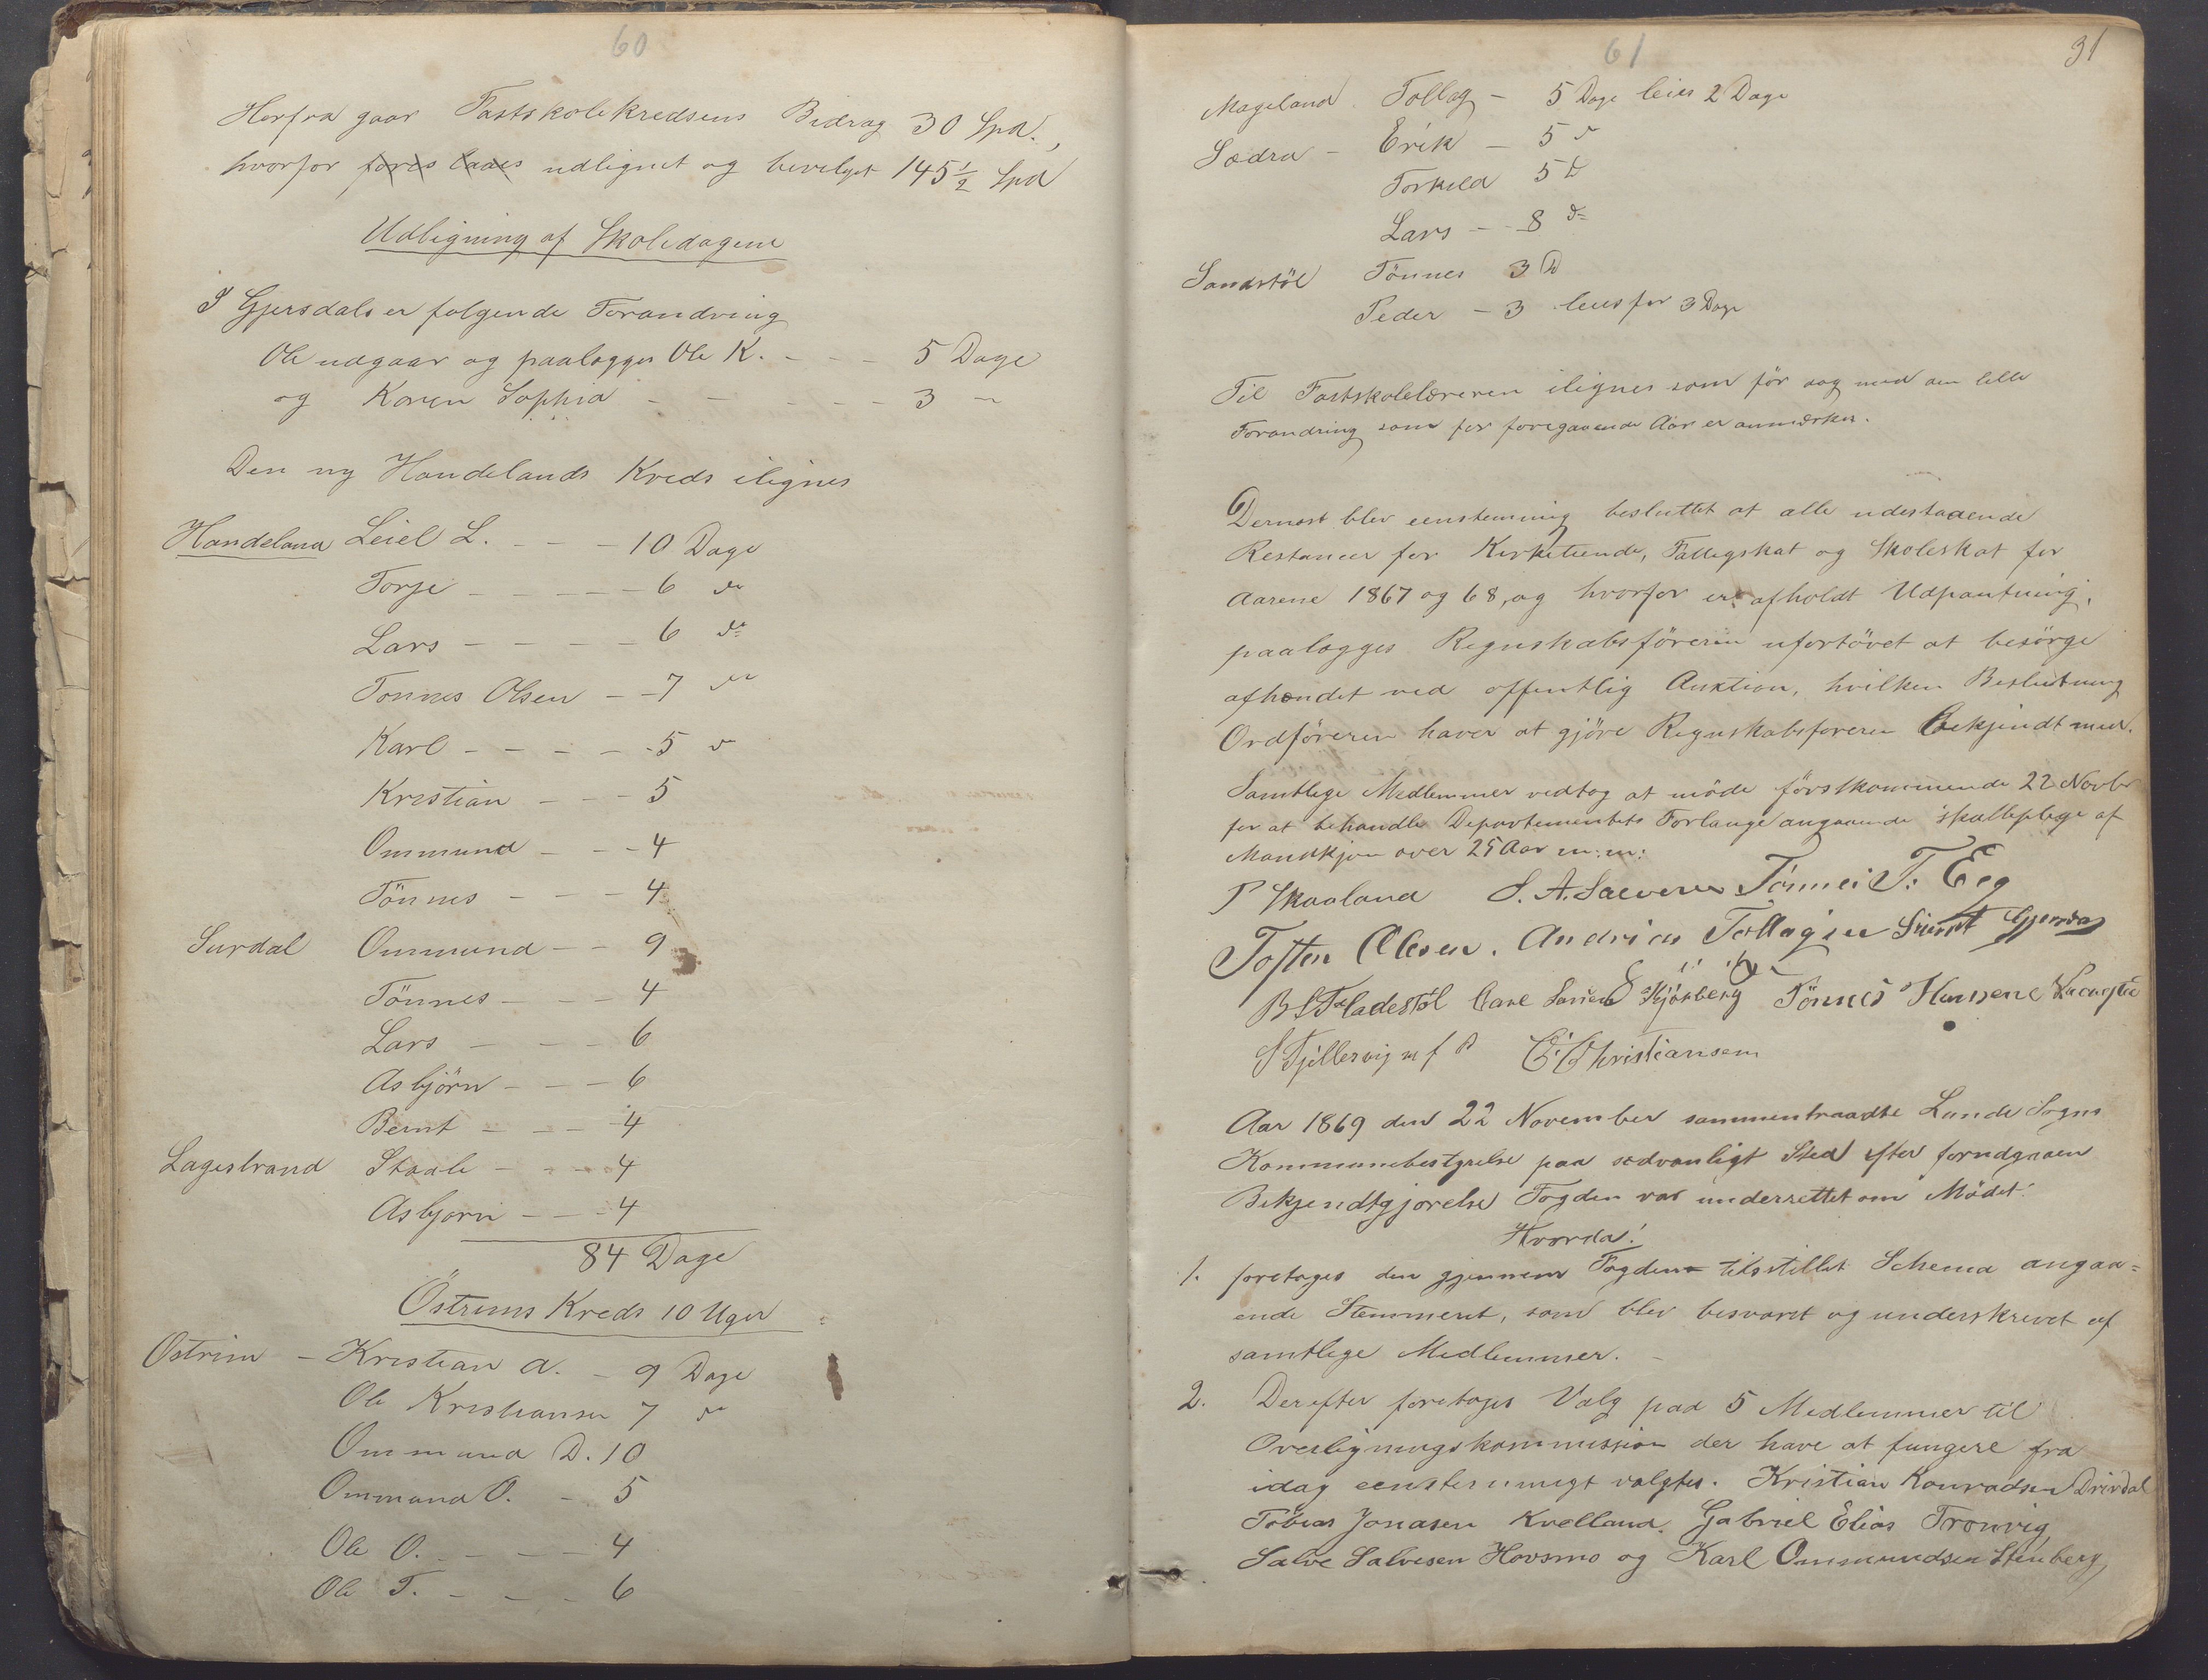 60
Herfra gaar Fastskolekredsens Bidrag 30 Spd.,
hvorfor udlignet og bevilget 145 1/2 Spd
Udligning af Skoledagene
I Gjersdals er følgende Forandring
Ole udgaar og paalægges Ole K. - - - 5 Dage
og Karen Sophia - - - - - 3 -
Den ny Handelands Kreds ilignes
Handeland Leiel L. - - - 10 Dage
Torje - - - - - 6 do
Lars - - - - - 6 do
Tønnes Olsen - - 7 do
Karl - - - - - 5 do
Kristian - - - 5
Ommund - - - 4
Tönnes - - - 4
Surdal Ommund - - 9
Tönnes - - - 4
Lars - - - 6
Asbjörn - - - 6
Bernt - - - 4
Lagestrand Staale - - - 4
Asbjørn - - - 4
84 Dage
Östrems Kreds 10 Uger
Østrem - Kristian A. - 9 Dage
Ole Kristiansen 7 do
Ommund D. 10
Ommund O. - 5
Ole O. - - - - 4
Ole T. - - - - 6
61
31
Mageland Tollag - 5 Dage leies 2 Dage
Sædra - Erik - 5 do
Torkild 5 D
Lars - - 8 do
Sandstöl Tönnes 3 D
Peder - 3 leies for 3 Dage
Til Fastskolelæreren ilignes som för dog med den lille
Forandring som for foregaaende Aar er anmærket.
Dernæst blev eenstemmig besluttet at alle udestaaende
Restancer for Kirketiende, Fattigskat og Skoleskat for
Aarene 1867 og 68, og hvorfor er afholdt Udpantning,
paalægges Regnskabsföreren ufortövet at besörge
afhændet ved offentlig Auktion, hvilken Beslutning
Ordföreren haver at gjöre Regnskabsføreren bekjendt med.
Samtlige Medlemmer vedtog at möde förstkommende 22 Novbr
for at behandle Departementets Forlange angaaende
Mandkjøn over 25 Aar m: m:
P Skaaland S. A. Tönnes T. Eeg
Tosten Olesen. Andreas Tollagsen Gjersdal
B S Fladestöl Carl Larsen Skjönberg Tönnes Hansene
S Fjellesvig m f P C. Christiansen
Aar 1869 den 22 November sammentraadte Lunde Sogns
Kommunebestyrelse paa sedvanligt Sted efter forudgaaen
Bekjendtgjørelse Fogden var underrettet om Mödet.
Hvorda!
1. foretoges den gjennem Fogden tilstillet Schema angaa=
ende Stemmeret, som blev besvaret og underskrevet af
samtlige Medlemmer. -
2. Derefter foretoges Valg paa 5 Medlemmer til
Overligningskommission der have at fungere fra
idag eenstemmigt valgtes. Kristian Konradsen Drivdal
Tobias Jonasen Kvelland. Gabriel Elias Tronvig,
Salve Salvesen Hovsmo og Karl Ommundsen Stenberg,